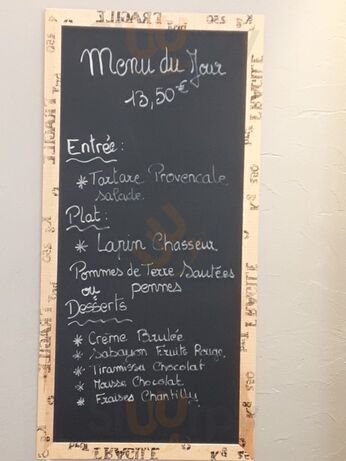 FRAGILE
Menu du Jour
13,50€
Entrée :
* Tartare Provencale
salade
Plat :
* Lapin Chasseur
Pommes de Terre Sautées
ou pennes
Desserts
* Crème Brulée
* Sabayon Fruits Rouge
* Tiramissu Chocolat
* Mousse Chocolat
* Fraises Chantilly
FRAGILE
FRAGILE
FRAGILE